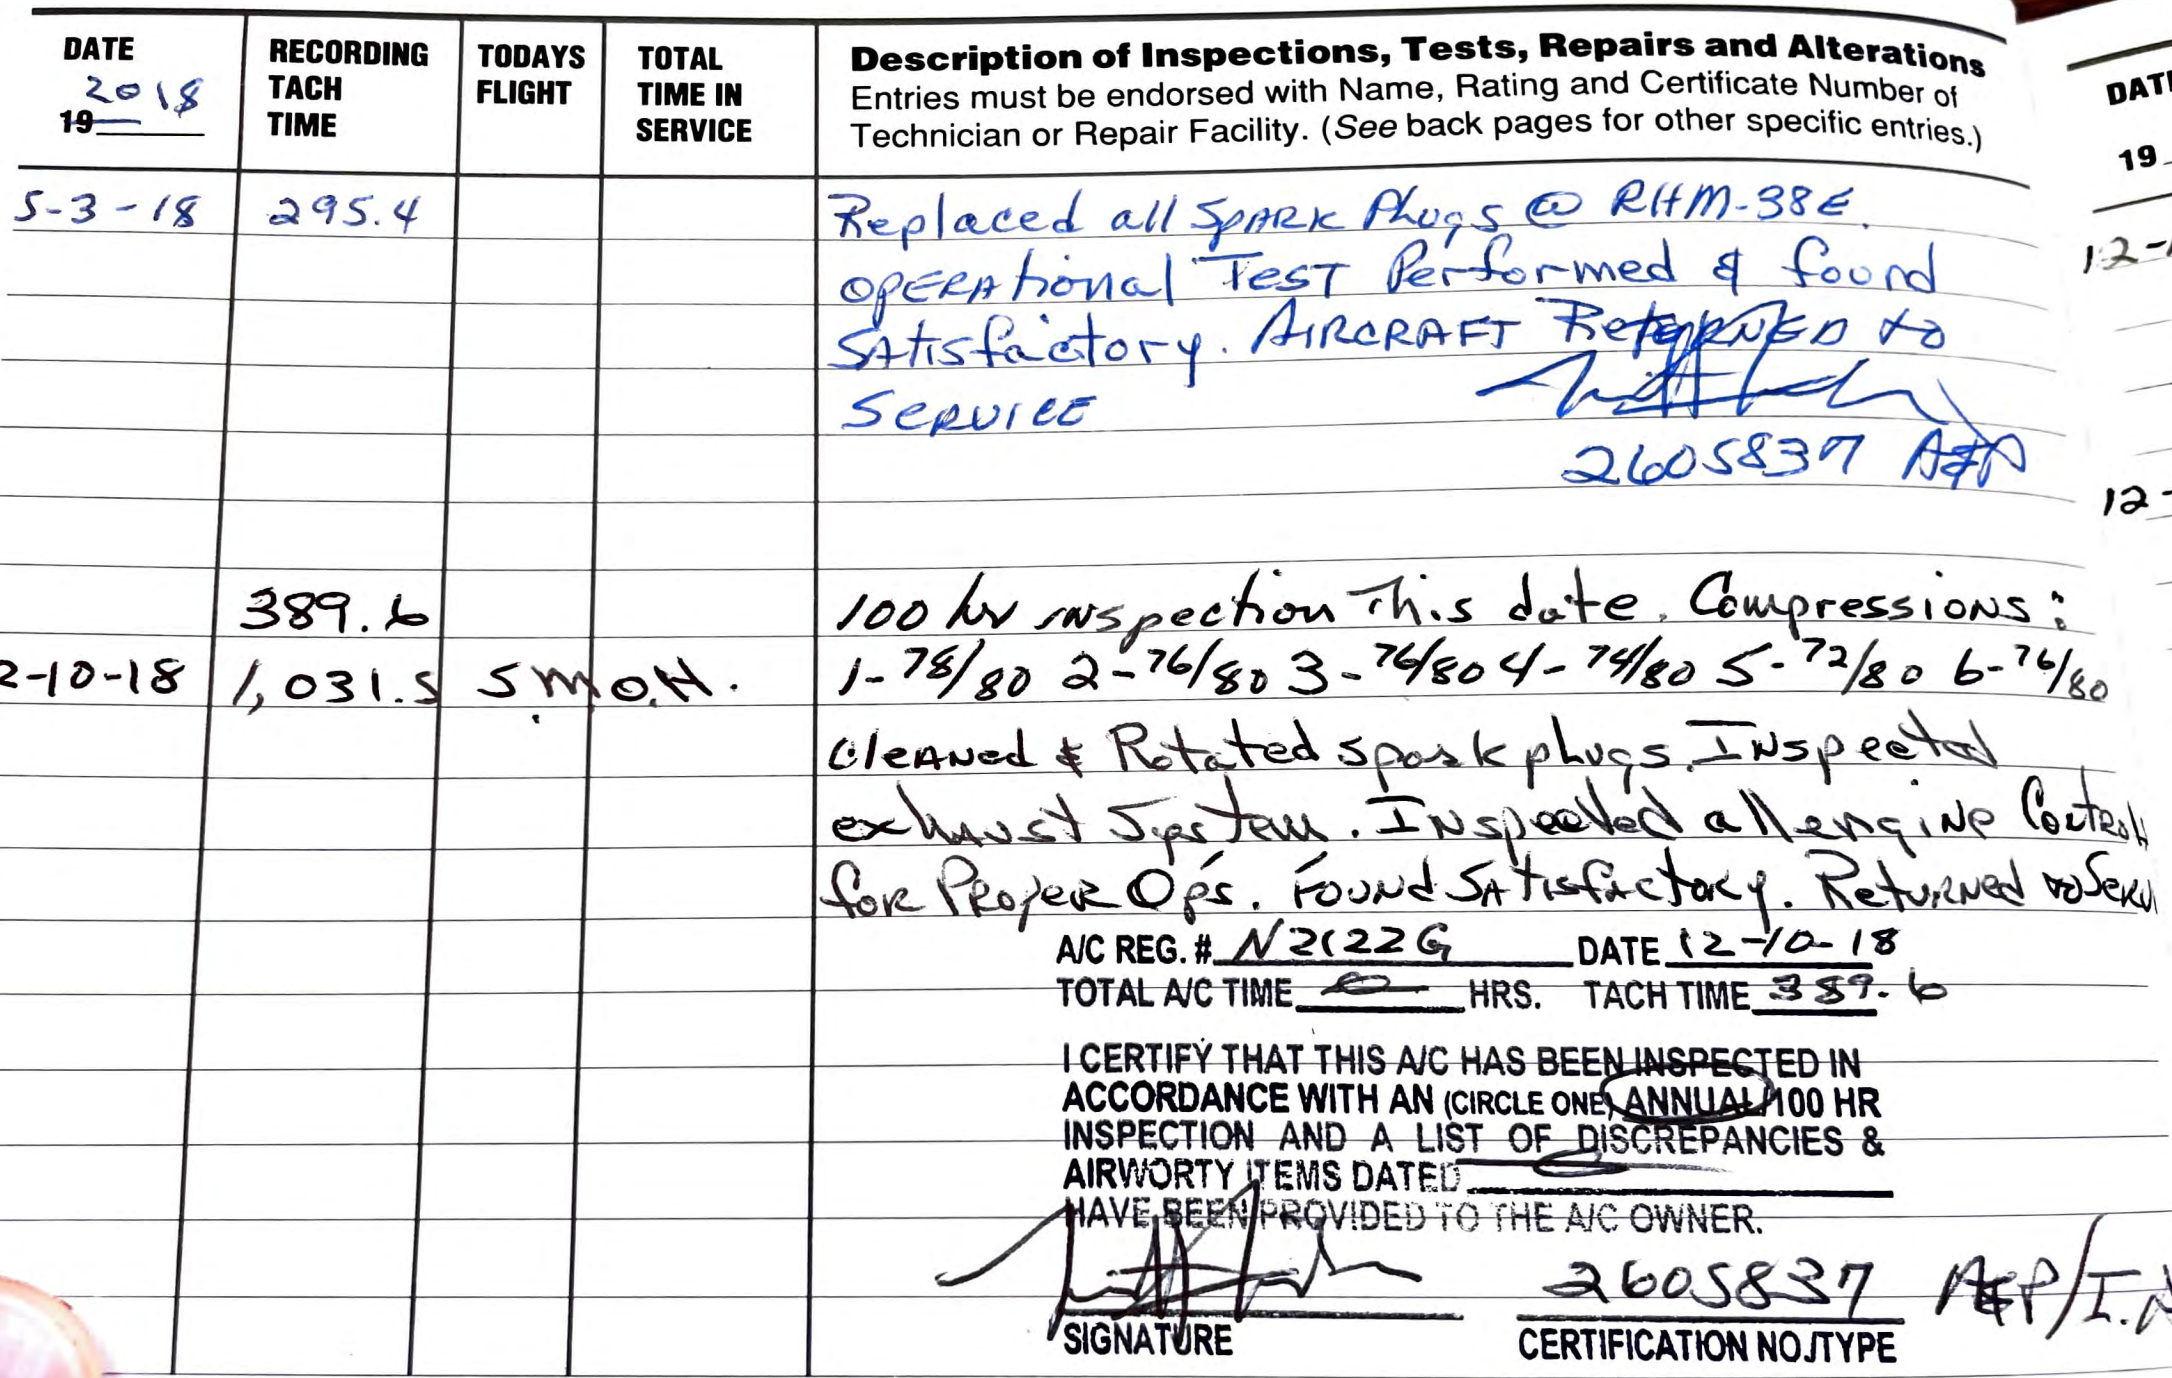 DATE RECORDING TODAYS TOTAL Description of Inspections, Tests, Repairs and Alterations
2018 TACH FLIGHT TIME IN Entries must be endorsed with Name, Rating and Certificate Number of
19 TIME SERVICE Technician or Repair Facility. (See back pages for other specific entries.)
5-3-18 295.4 Replaced all SPARK Plugs @ RHM-38E.
OPERAtional TesT Performed & found
SAtisfactory. AIRCRAFT RetURNED to
SERVICE
2605837 A&P
389.6 100 hr inspection This date. Compressions:
2-10-18 1,031.5 S.M.O.H. 1-78/80 2-76/80 3-76/80 4-74/80 5-72/80 6-76/80
CleANed & Rotated spark plugs. INspected
exhaust System. INspected all engiNe Controls
for PRoper Op's. FOUNd SAtisfactory. RetuRNed to Serv
A/C REG. # N2122G DATE 12-10-18
TOTAL A/C TIME HRS. TACH TIME 389.6
I CERTIFY THAT THIS A/C HAS BEEN INSPECTED IN
ACCORDANCE WITH AN (CIRCLE ONE) ANNUAL/100 HR
INSPECTION AND A LIST OF DISCREPANCIES &
AIRWORTY ITEMS DATED
HAVE BEEN PROVIDED TO THE A/C OWNER.
2605837 A&P/I.A
SIGNATURE CERTIFICATION NO./TYPE
DATE
19
12-
12-